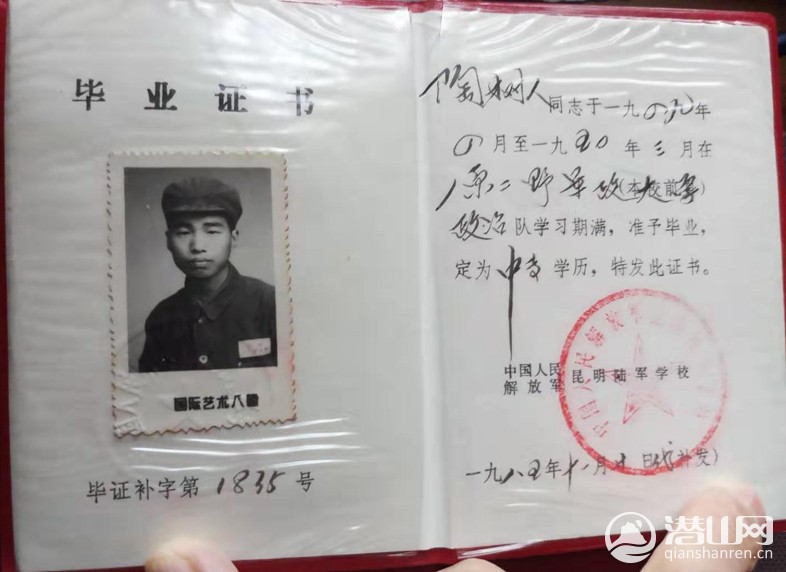 毕业证书
国际艺术人像
毕证补字第1835号
陶树人同志于一九四九年
四月至一九五〇年三月在
原二野军政大学(本校前身)
政治队学习期满，准予毕业，
定为中专学历，特发此证书。
中国人民
解放军昆明陆军学校
一九八五年十一月十日(补发)
潜山网
qianshanren.cn